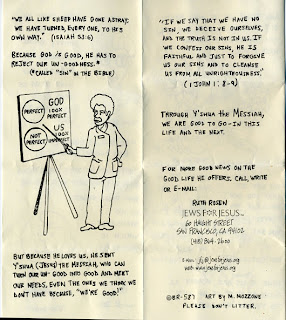 "WE ALL LIKE SHEEP HAVE GONE ASTRAY;
WE HAVE TURNED, EVERY ONE, TO HIS
OWN WAY." (ISAIAH 53:6)
BECAUSE GOD IS GOOD, HE HAS TO
REJECT OUR UN-GOODNESS.*
(*CALLED "SIN" IN THE BIBLE)
PERFECT
GOD
100%
PERFECT
NOT
PERFECT
US
100%
IMPERFECT
BUT BECAUSE HE LOVES US, HE SENT
Y'SHUA (JESUS) THE MESSIAH, WHO CAN
TURN OUR UN-GOOD INTO GOOD AND MEET
OUR NEEDS, EVEN THE ONES WE THINK WE
DON'T HAVE BECAUSE, "WE'RE GOOD!"
"IF WE SAY THAT WE HAVE NO
SIN, WE DECEIVE OURSELVES,
AND THE TRUTH IS NOT IN US. IF
WE CONFESS OUR SINS, HE IS
FAITHFUL AND JUST TO FORGIVE
US OUR SINS AND TO CLEANSE
US FROM ALL UNRIGHTEOUSNESS."
(1 JOHN 1:8-9)
THROUGH Y'SHUA THE MESSIAH,
WE ARE GOOD TO GO-IN THIS
LIFE AND THE NEXT.
FOR MORE GOOD NEWS ON THE
GOOD LIFE HE OFFERS, CALL, WRITE
OR E-MAIL:
RUTH ROSEN
JEWS FOR JESUS
60 HAIGHT STREET
SAN FRANCISCO, CA 94102
(415) 864-2600
E-MAIL: jfj@jewsforjesus.org
web: www.jewsforjesus.org
©BR-587 ART BY M. MOZZONE
PLEASE DON'T LITTER.